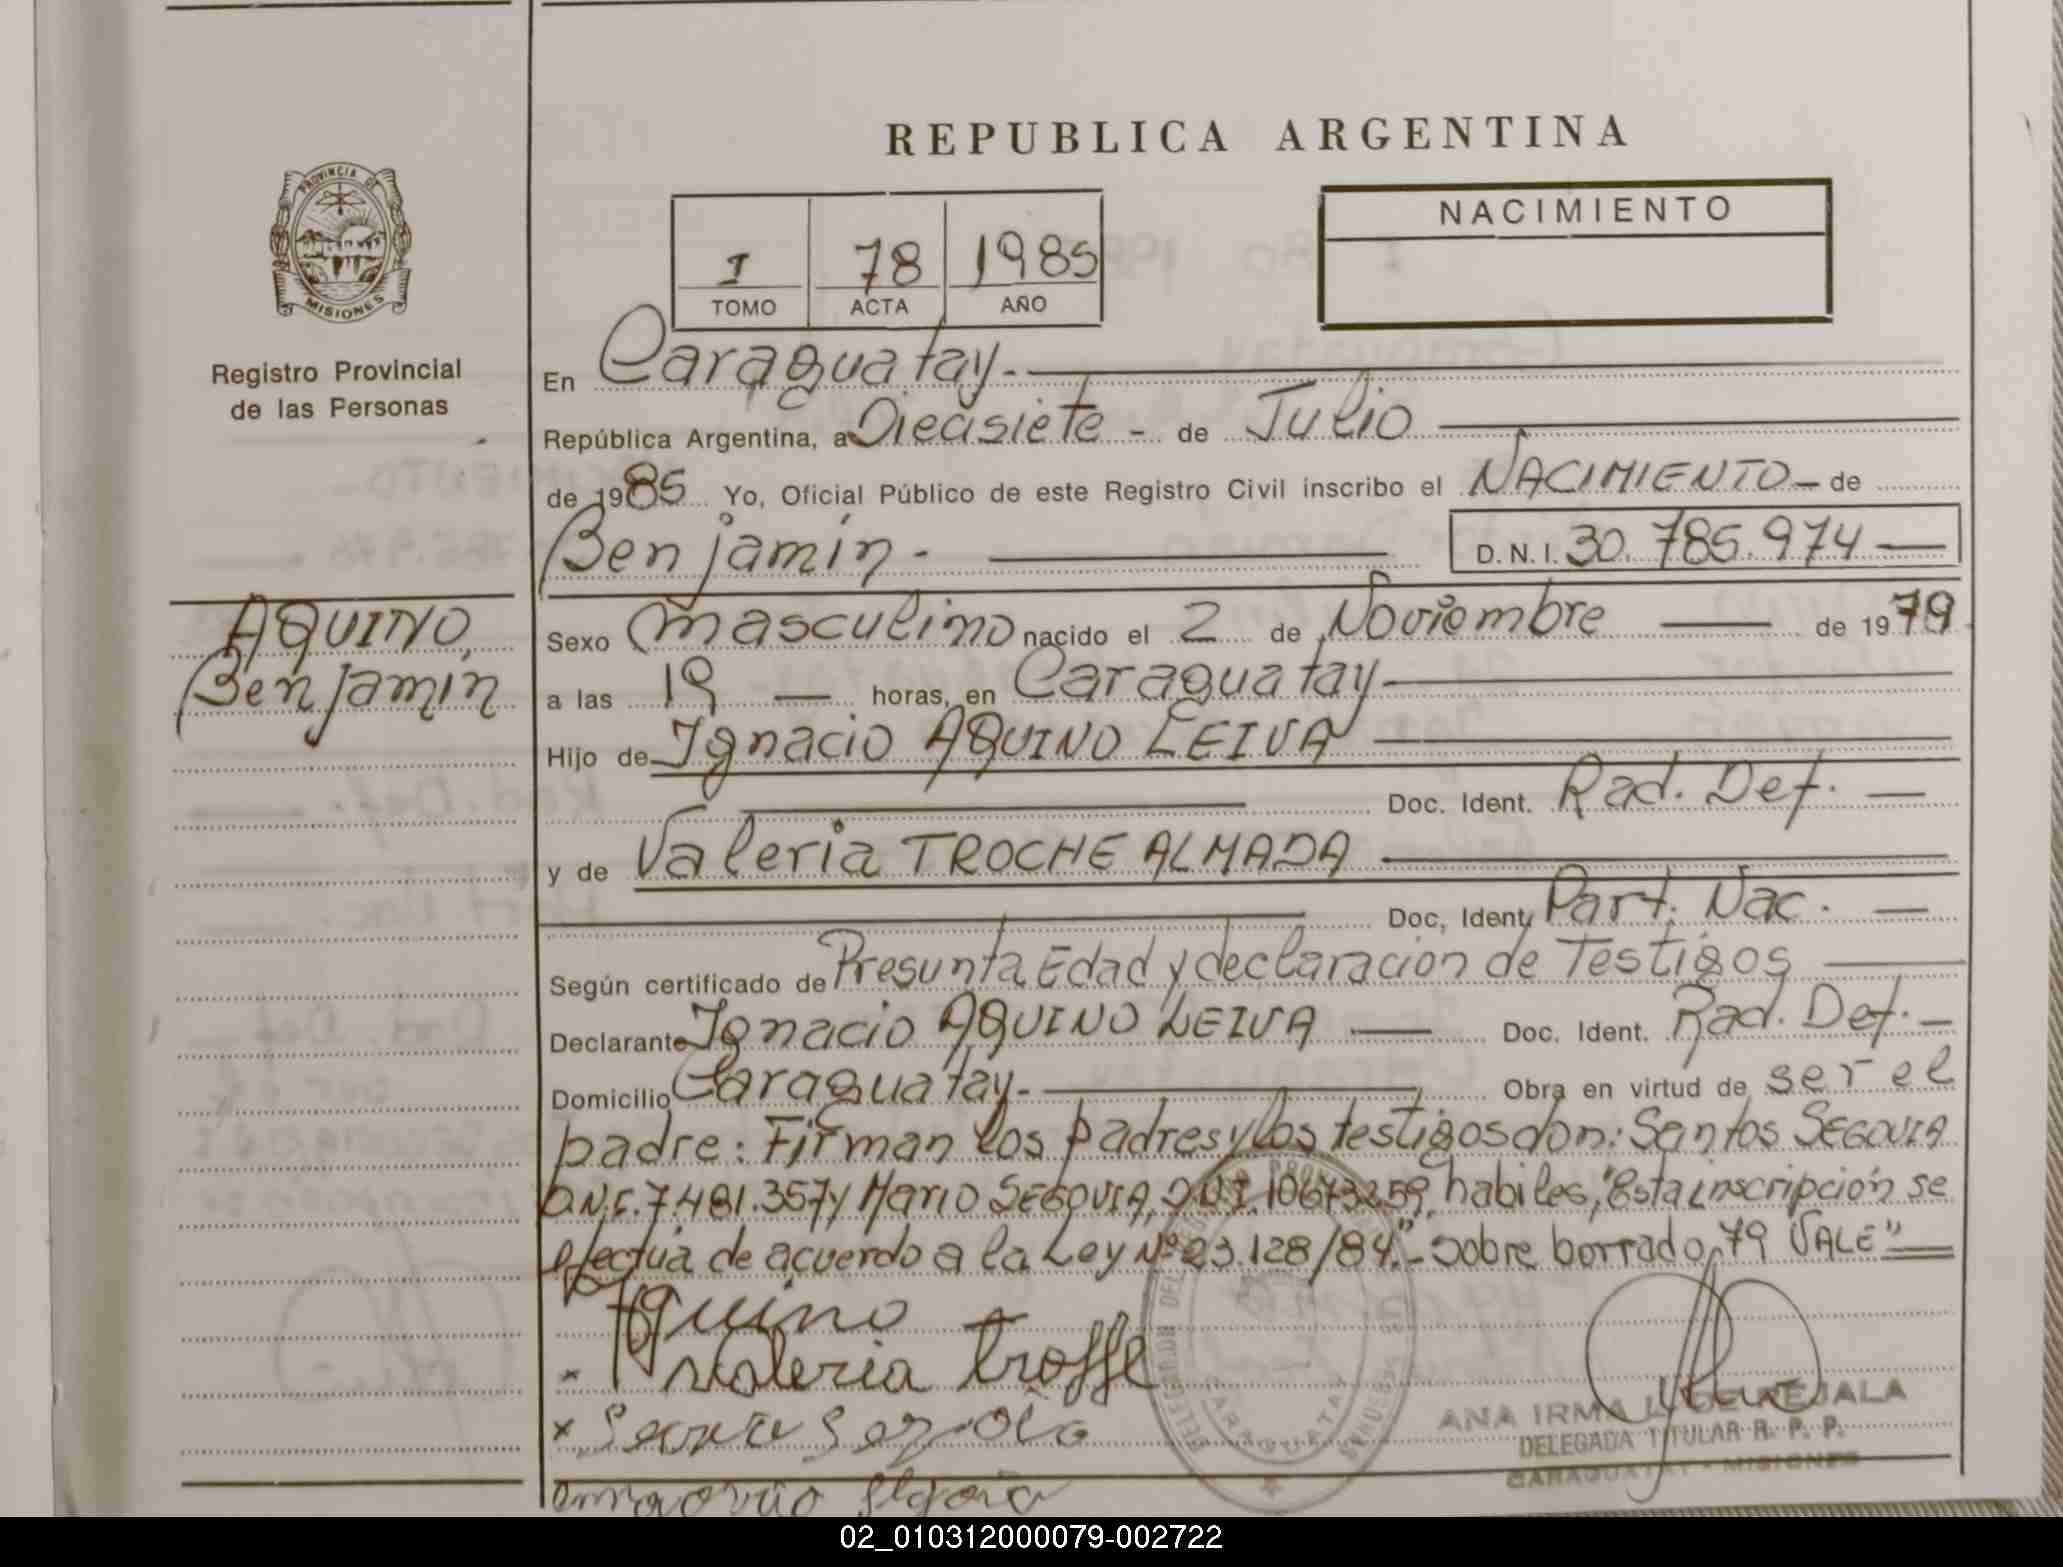 REPUBLICA ARGENTINA
PROVINCIA DE
MISIONES
Registro Provincial
de las Personas
I 78 1985
TOMO ACTA AÑO
NACIMIENTO
En Caraguatay.-
República Argentina, a Diecisiete - de Julio
de 1985 Yo, Oficial Público de este Registro Civil inscribo el NACIMIENTO - de
Benjamín.- D.N.I. 30.785.974 —
AQUINO,
Benjamín
Sexo masculino nacido el 2 de Noviembre — de 1979
a las 19 — horas, en Caraguatay
Hijo de Ignacio AQUINO LEIVA
Doc. Ident. Rad. Def. —
y de Valeria TROCHE ALMADA
Doc. Ident. Part. Nac. —
Según certificado de Presunta Edad y declaración de Testigos
Declarante Ignacio AQUINO LEIVA — Doc. Ident. Rad. Def. —
Domicilio Caraguatay.- Obra en virtud de ser el
padre: Firman los padres y los testigos don: Santos SEGOVIA
D.N.I. 7.481.357 y Mario SEGOVIA, D.N.I. 10673259, habiles, "Esta inscripción se
efectúa de acuerdo a la Ley Nº 23.128/84."- Sobre borrado, 79 VALE"
Aquino
x Valeria troffe
x
ANA IRMA
DELEGADA TITULAR R. P. P.
CARAGUATAY - MISIONES
CARAGUATAY
02_010312000079-002722